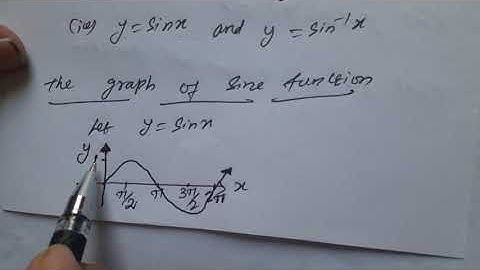 (ie) y = sinx and y = sin⁻¹x
the graph of sine function
Let y = sinx
y
π/2 π 3π/2 2π x